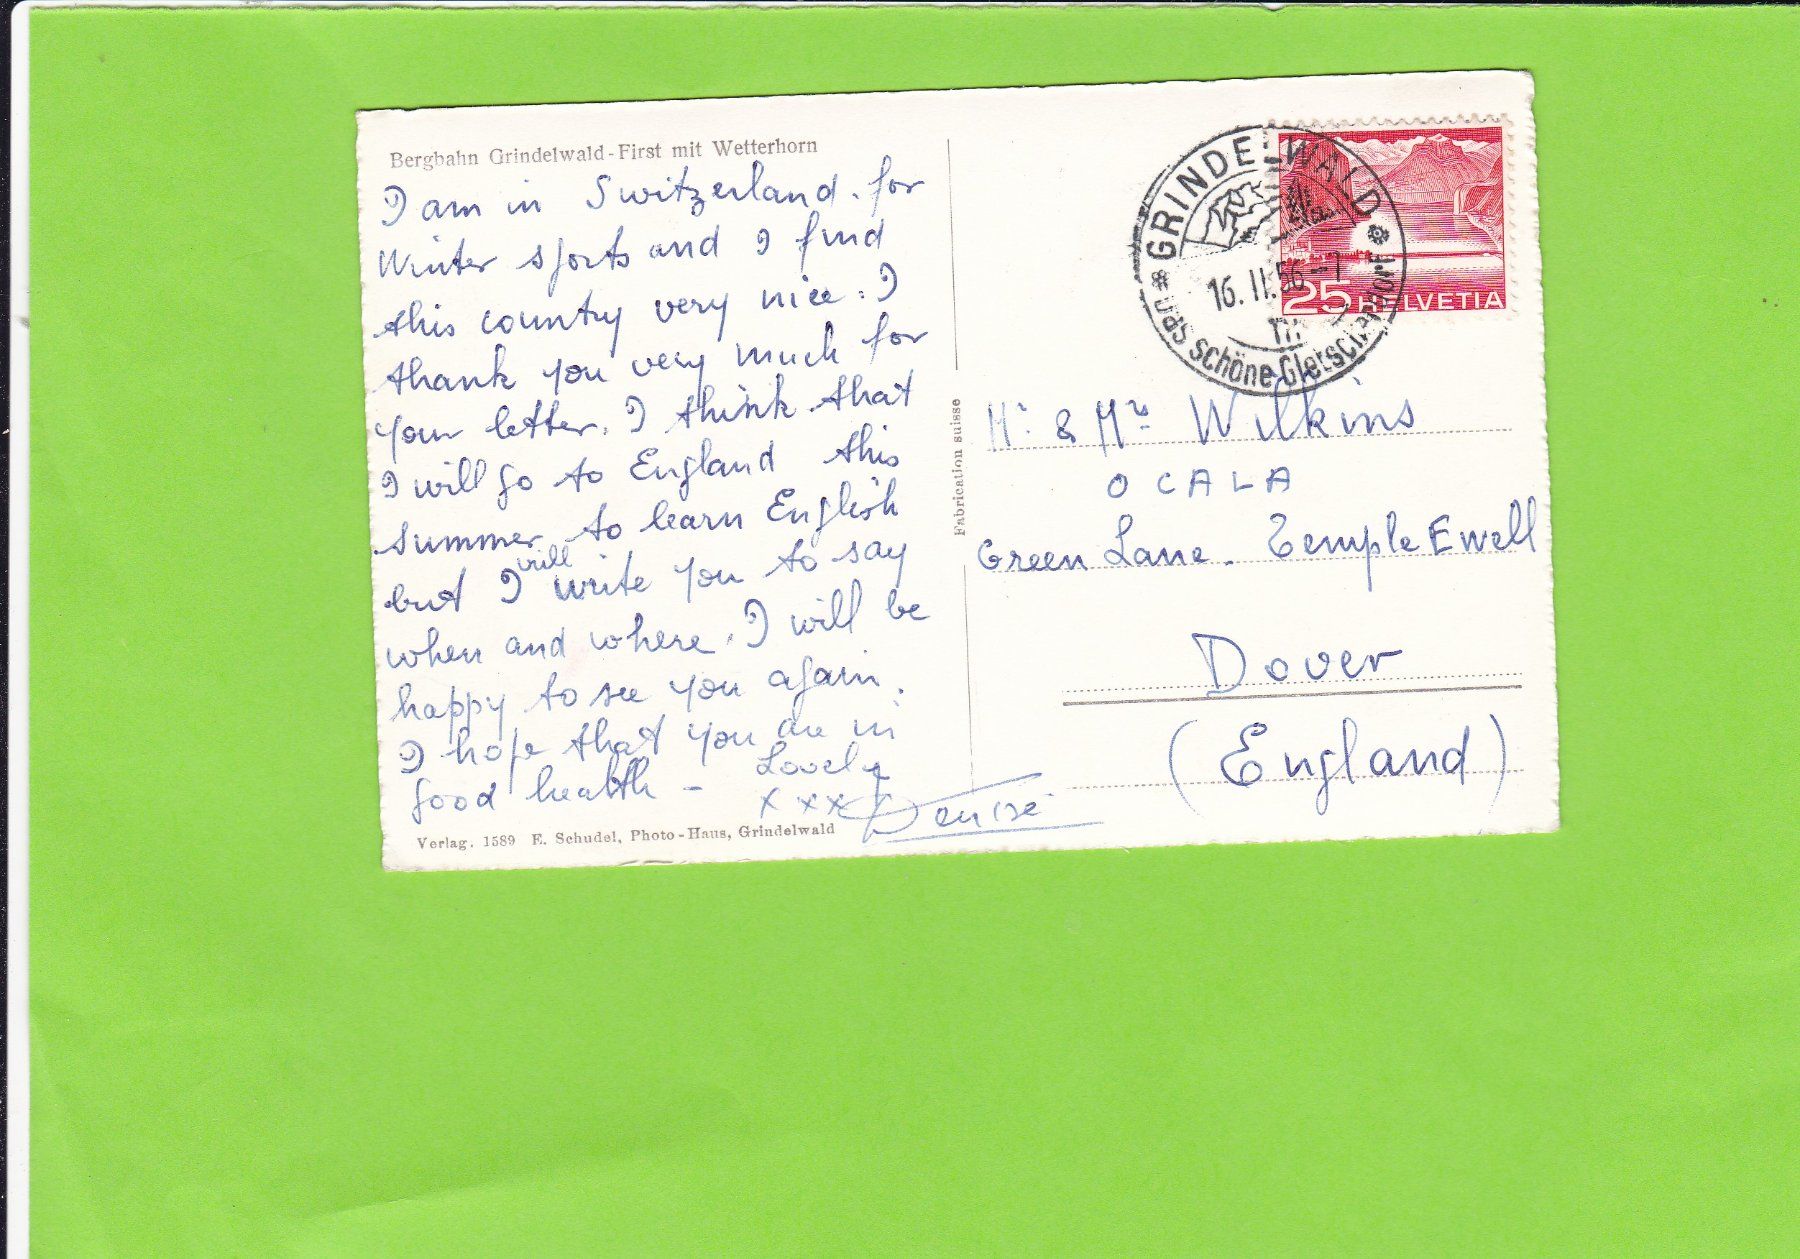 Bergbahn Grindelwald-First mit Wetterhorn
I am in Switzerland. for
Winter sports and I find
this country very nice. I
thank you very much for
your letter. I think that
I will go to England this
summer to learn English
but I will write you to say
when and where. I will be
happy to see you again.
I hope that you are in
good health - Lovely
xxx Denise
Verlag. 1589 E. Schudel, Photo-Haus, Grindelwald
Fabrication suisse
GRINDELWALD
16. II. 56 - 7
das schöne Gletscherdorf
25 HELVETIA
Mr & Mrs Wilkins
OCALA
Green Lane. Temple Ewell
Dover
(England)